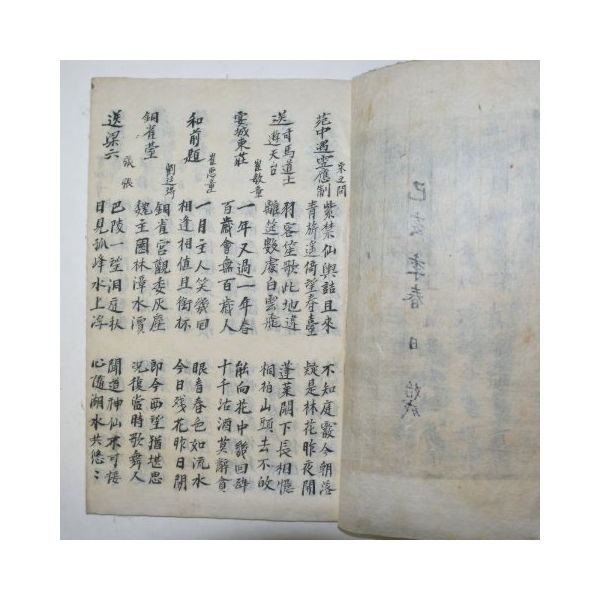 己亥季春 日 始成
苑中遇雪應制 宋之問
紫禁仙輿詰且來 不知庭霰今朝落
青旂遙倚望春臺 疑是林花昨夜開
送司馬道士遊天台
羽客笙歌此地違 蓬萊闕下長相憶
離筵數處白雲飛 桐柏山頭去不皈
宴城東莊 崔敏童
一年又過一年春 能向花中幾回醉
百歲曾無百歲人 十千沽酒莫辭貧
和前題 崔惠童
一月主人笑幾回 眼看春色如流水
相逢相值且銜杯 今日殘花昨日開
銅雀臺 劉廷琦
銅雀宮觀委灰塵 即今西望猶堪思
魏主園林漳水濱 況復當時歌舞人
送梁六 張
巴陵一望洞庭秋 聞道神仙不可接
日見孤峰水上浮 心隨湖水共悠〻